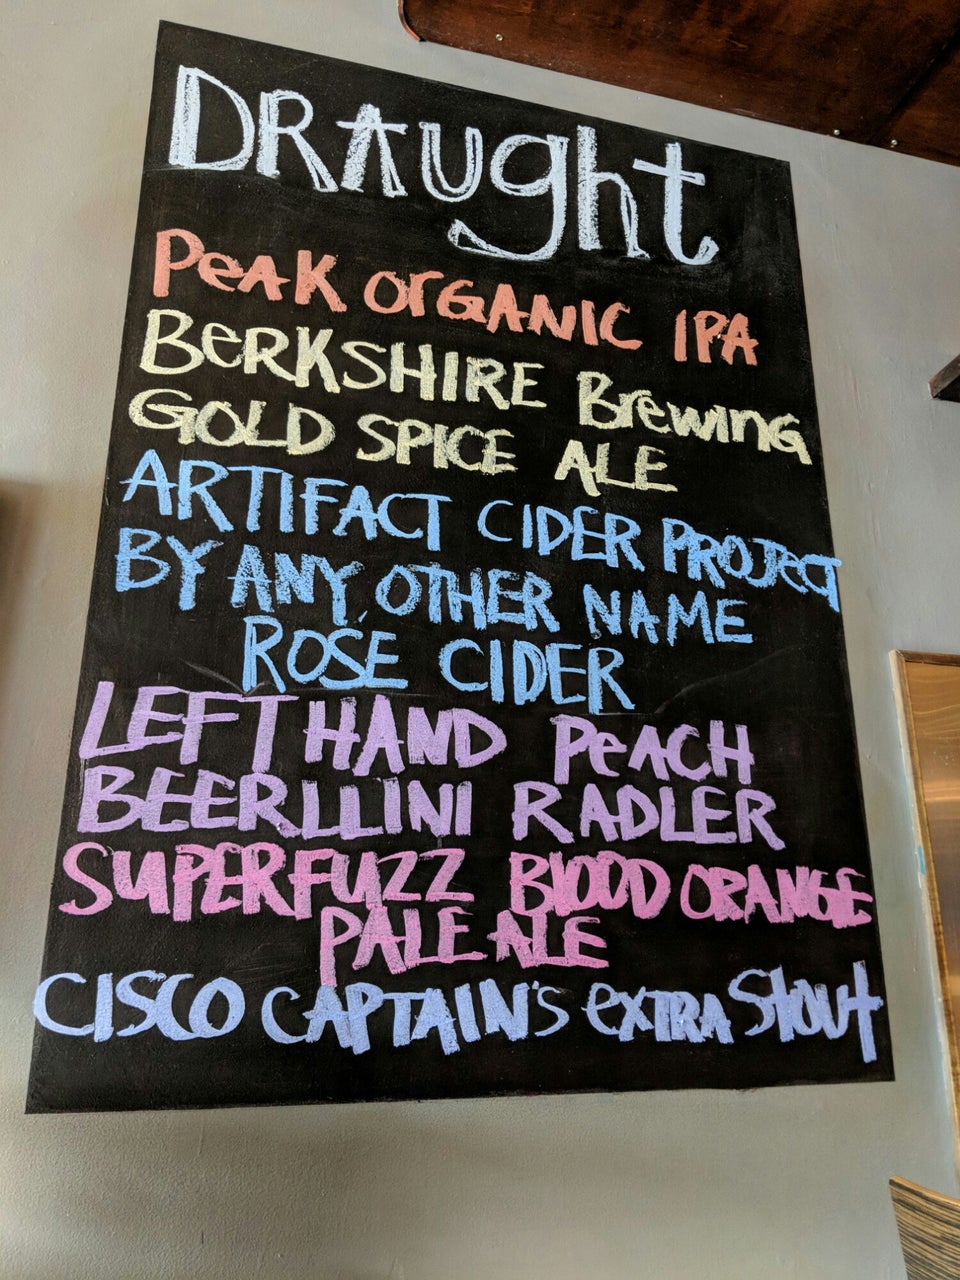 DRAught
PeAK OrGANIC IPA
BeRKSHIRE Brewing
GOLD SPICE ALE
ARTIFACT CIDER PROJECT
BY ANY OTHER NAME
ROSE CIDER
LEFT HAND PeACH
BEERLLINI RADLER
SUPERFUZZ BLOOD ORANGE
PALE ALE
CISCO CAPTAIN's eXTRA Stout